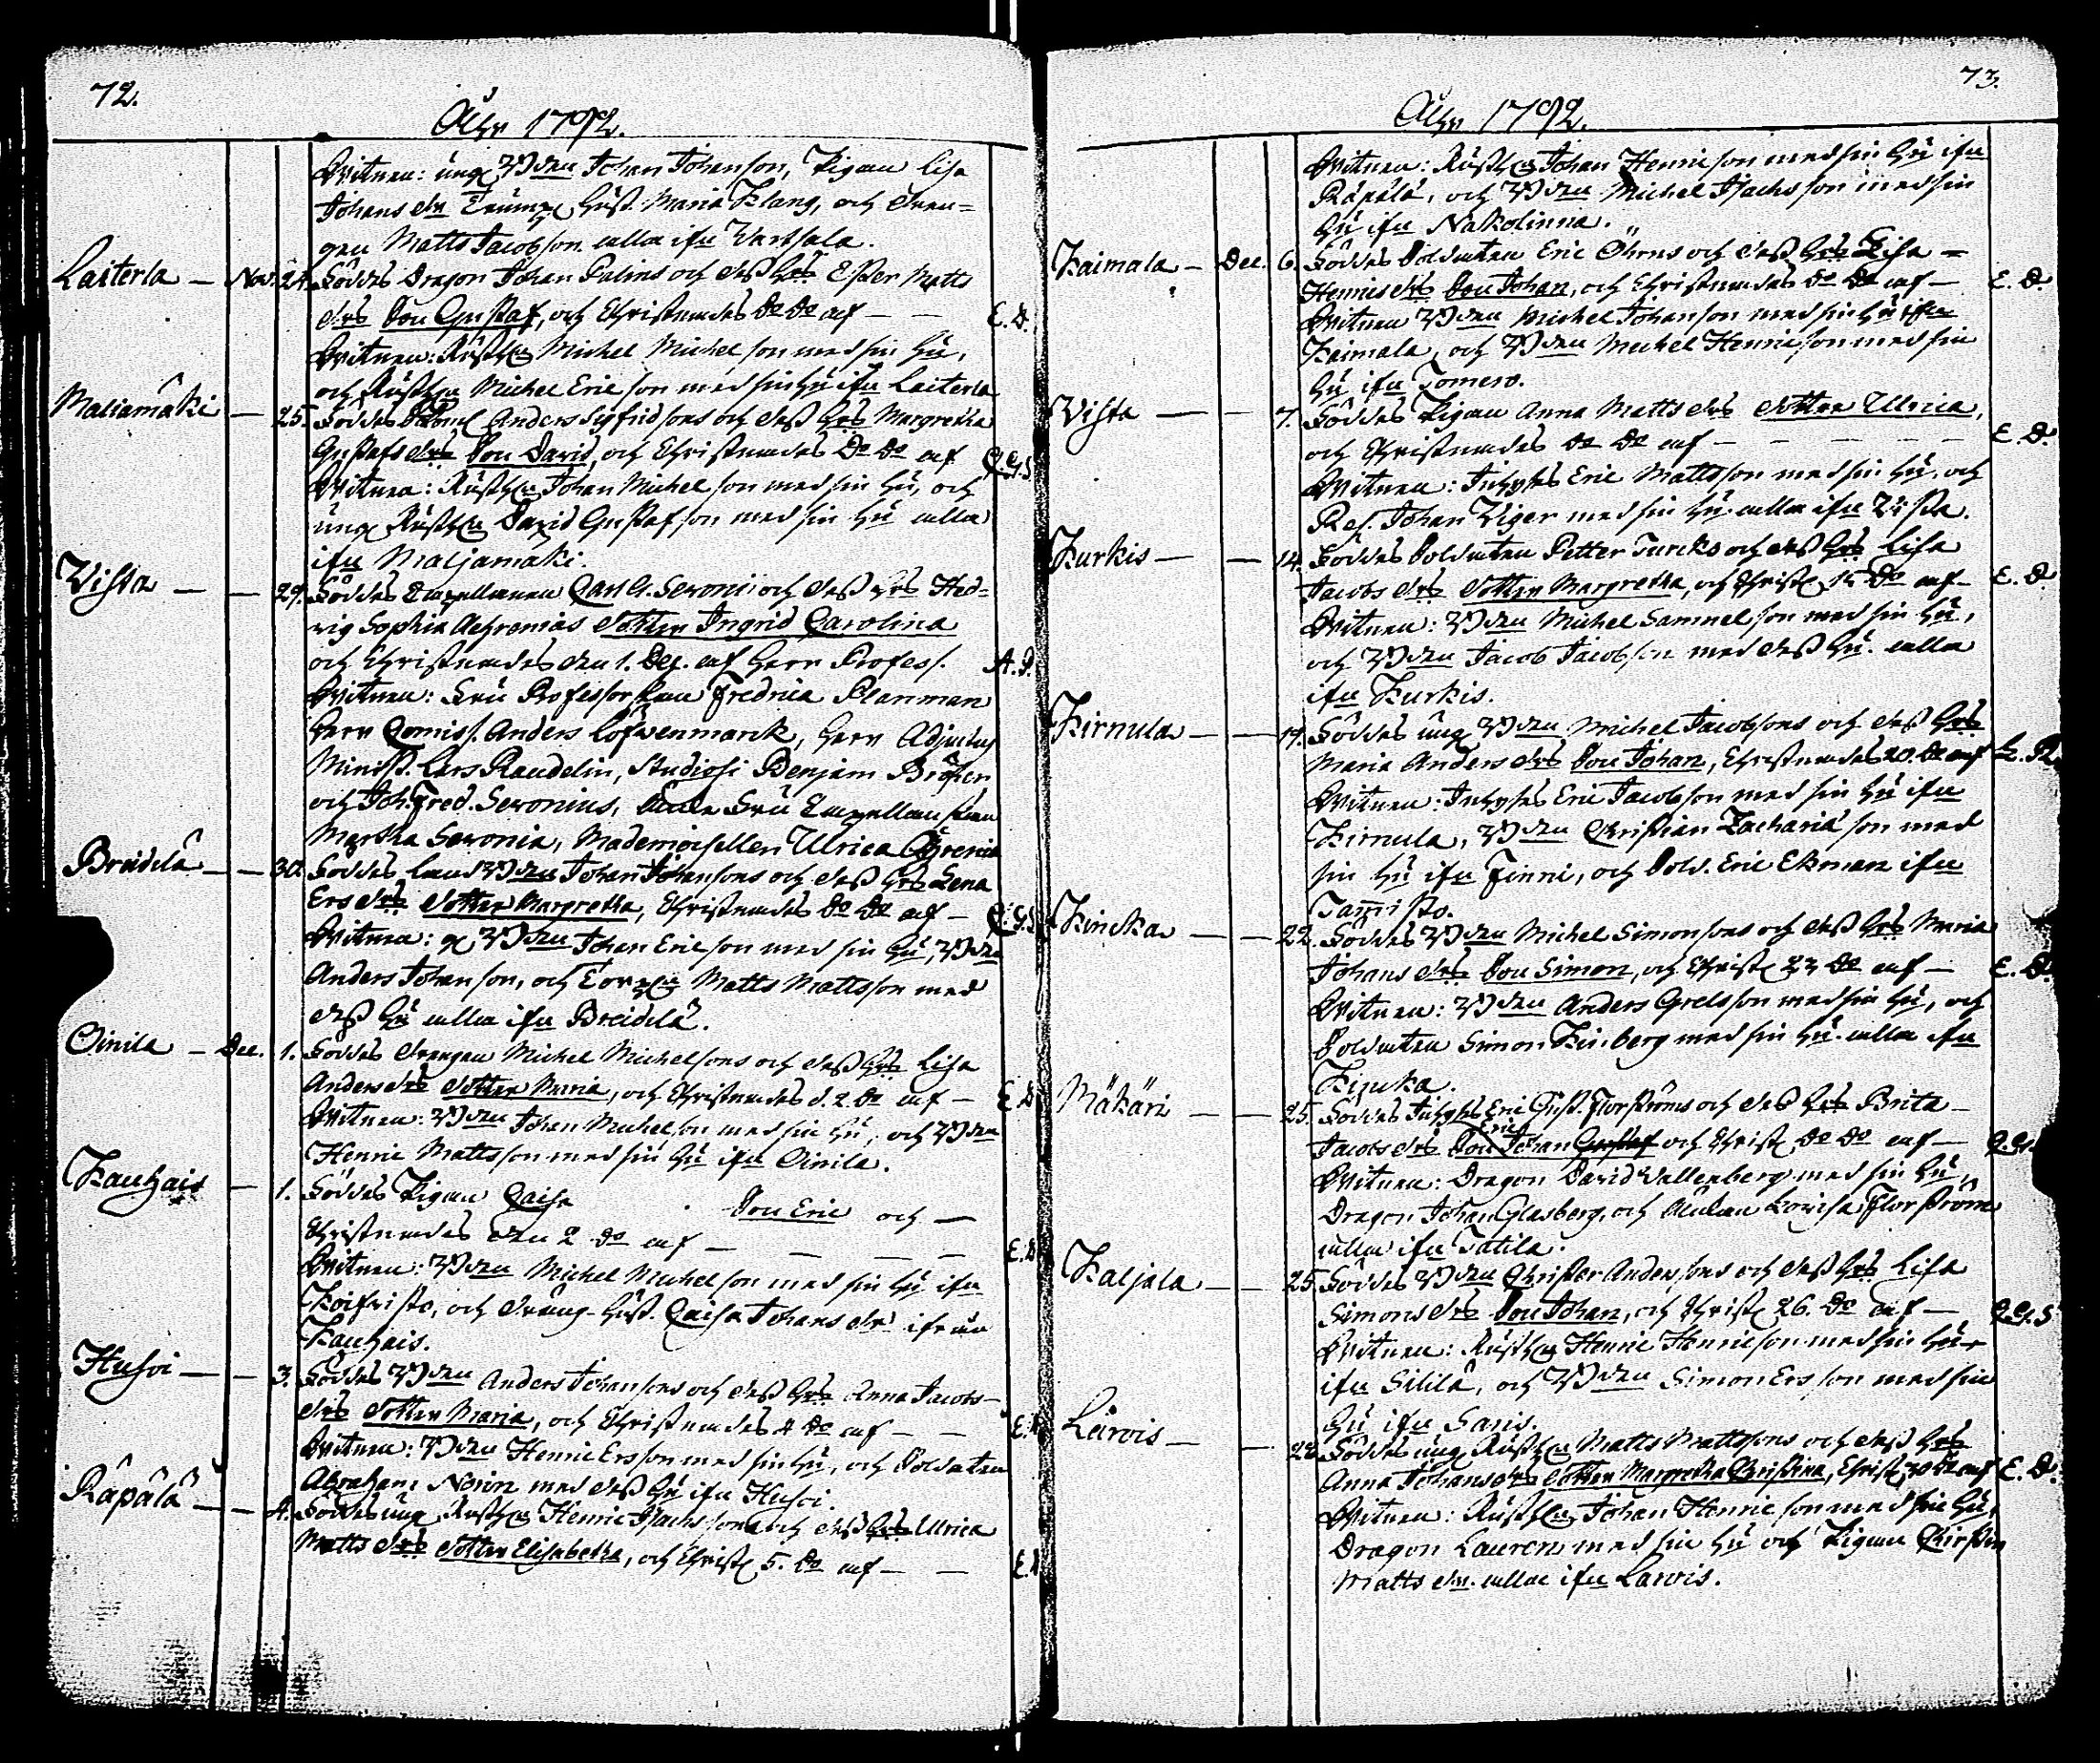 72.
Åhr 1792.
Witnen: ung Bden Johan Johanson, Pigan Lisa
Johans dr Trump: hust. Maria Klang, och dren=
gen Matts Jacobson alla ifrn Wartsala.
Laiterla — Nov. 24. Föddes Dragon Johan Palins och dess hrs Ester Matts
drs Son Gustaf, och Christnades Do Do af — — E. D.
Witnen: Rusth: Michel Michelson med sin hu,
och Rusth: Michel Ericson med sin hu ifrn Laiterla
Maliamäki — 25. Föddes Anders Sigfridsons och dess hrs Margretha
Gustafs drs Son David, och Christnades Do Do af
Witnen: Rusth: Johan Michelson med sin hu, och
ung Rusth: David Gustafson med sin hu alla
ifrn Maljamäki.
Vista — — 29. Föddes Capellanen Carl G. Seronii och dess hrs Hed=
vig Sophia Achrenias dotter Ingrid Carolina
och Christnades den 1. Dec. af Herr Profess. A. P.
Witnen: Fru Professorskan Fredrica Planman
Herr Comiss. Anders Löfvenmarck, Herr Adjutus
Minist. Lars Randelin, Studiosi Benjam
och Joh. Fred. Seronius, Fru Capellanskan
Martha Seronia, Mademoisellen Ulrica
Breidelä — — 30. Föddes Land Bden Johan Johansons och dess hrs Lena
Ers drs dotter Margretha, Christnades Do Do af —
Witnen: g: Bden Johan Ericson med sin hu, Bden
Anders Johanson, och Torp: Matts Mattsson med
dess hu alla ifrn Breidelä.
Oinila — Dec. 1. Föddes drengen Michel Michelsons och dess hrs Lisa
Anders drs dotter Maria, och Christnades d. 2. Do af — E. D
Witnen: Bden Johan Michelson med sin hu, och Bden
Henric Mattsson med sin hu ifrn Oinila.
Kauhais — 1. Föddes Pigan Caisa Son Eric och —
Christnades den 2 Do af — — — — E. D
Witnen: Bden Michel Michelson med sin hu ifrn
Koifvisto, och dräng-hust. Caisa Johans dr ifrån
Kauhais.
Husvi — — 3. Föddes Bden Anders Johansons och dess hrs Anna Jacobs—
drs dotter Maria, och Christnades 4 Do af — — E. D
Witnen: Bden Henric Ersson med sin hu, och Soldaten
Abraham Norin med dess hu ifrn Husvi.
Räpälä — — 4. Föddes ung Rusth: Henric Isachssons och dess hrs Ulrica
Matts drs dotter Elisabetha, och Christ: 5. Do af — — E. D
73.
Åhr 1792.
Witnen: Rusth: Johan Henricson med sin hu ifrn
Räpälä, och Bden Michel Isachsson med sin
hu ifrn Nakolinna.
Kaimala — Dec. 6. Föddes Soldaten Eric Öhrns och dess hrs Lisa =
Henrics drs Son Johan, och Christnades Do Do af — E. D
Witnen Bden Michel Johanson med sin hu ifrn
Kaimala, och Bden Michel Henricson med sin
hu ifrn Tomero.
Vista — — 7. Föddes Pigan Anna Matts drs dotter Ulrica,
och Christnades Do Do af — — — — — E. D.
Witnen: Inhyses Eric Mattsson med sin hu, och
Ref. Johan Viger med sin hu alla ifrn Vista.
Kurkis — — 14. Föddes Soldaten Petter Turcks och dess hrs Lisa
Jacobs drs dotter Margretha, och Christ: 15 Do af — E. D
Witnen: Bden Michel Samuelson med sin hu,
och Bden Jacob Jacobson med dess hu. alla
ifrn Kurkis.
Kirnula — — 19. Föddes ung Bden Michel Jacobsons och dess hrs
Maria Anders drs Son Johan, Christnades 20. Do af L. R.
Witnen: Inhyses Eric Jacobson med sin hu ifrn
Kirnula, Bden Christian Zachariä son med
sin hu ifrn Finni, och Sold. Eric Ekman ifrn
Tammisto.
Kincka — — 22. Föddes Bden Michel Simonsons och dess hrs Maria
Johans drs Son Simon, och Christ: 23 Do af — E. D.
Witnen: Bden Anders Grelsson med sin hu, och
Soldaten Simon Kinberg med sin hu alla ifrn
Kincka.
Mäkäri — — 25. Föddes Inhyses Eric Gust. Florströms och dess hrs Brita —
Jacobs drs Son Johan Eric Gustaf och Christ: Do Do af —
Witnen: Dragon David Wallenberg med sin hu,
Dragon Johan Glasberg, och Lovisa Florström
alla ifrn Tatila.
Kaljala — — 25. Föddes Bden Christer Andersons och dess hrs Lisa
Simons drs Son Johan, och Christ: 26. Do af —
Witnen: Rusth: Henric Henricson med sin hu
ifrn Sililä, och Bden Simon Ersson med sin
hu ifrn Saris.
Lärvis — — 28. Föddes ung Rusth: Matts Mattsons och dess hrs
Anna Johans drs dotter Margretha Christina, Christ: 30 Do af E. D.
Witnen: Rusth: Johan Henricson med sin hu,
Dragon Lauren med sin hu och Pigan Christin
Matts dr. alla ifrn Larvis.